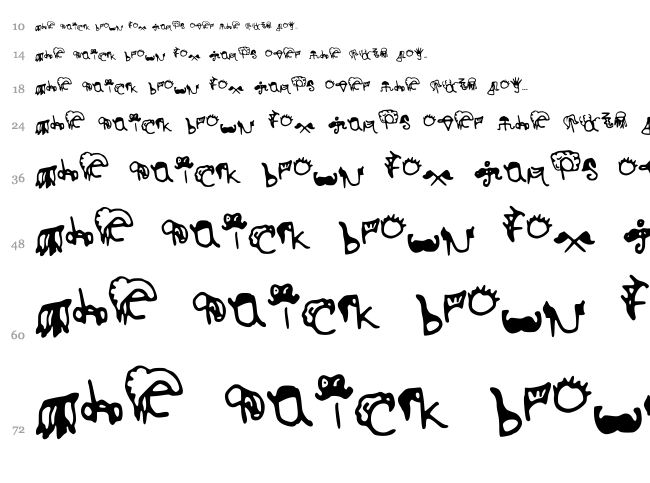 10 the quick brown fox jumps over the lazy dog...
14 the quick brown fox jumps over the lazy dog...
18 the quick brown fox jumps over the lazy dog...
24 the quick brown fox jumps over the lazy
36 the quick brown fox jumps
48 the quick brown fox
60 the quick brown
72 the quick